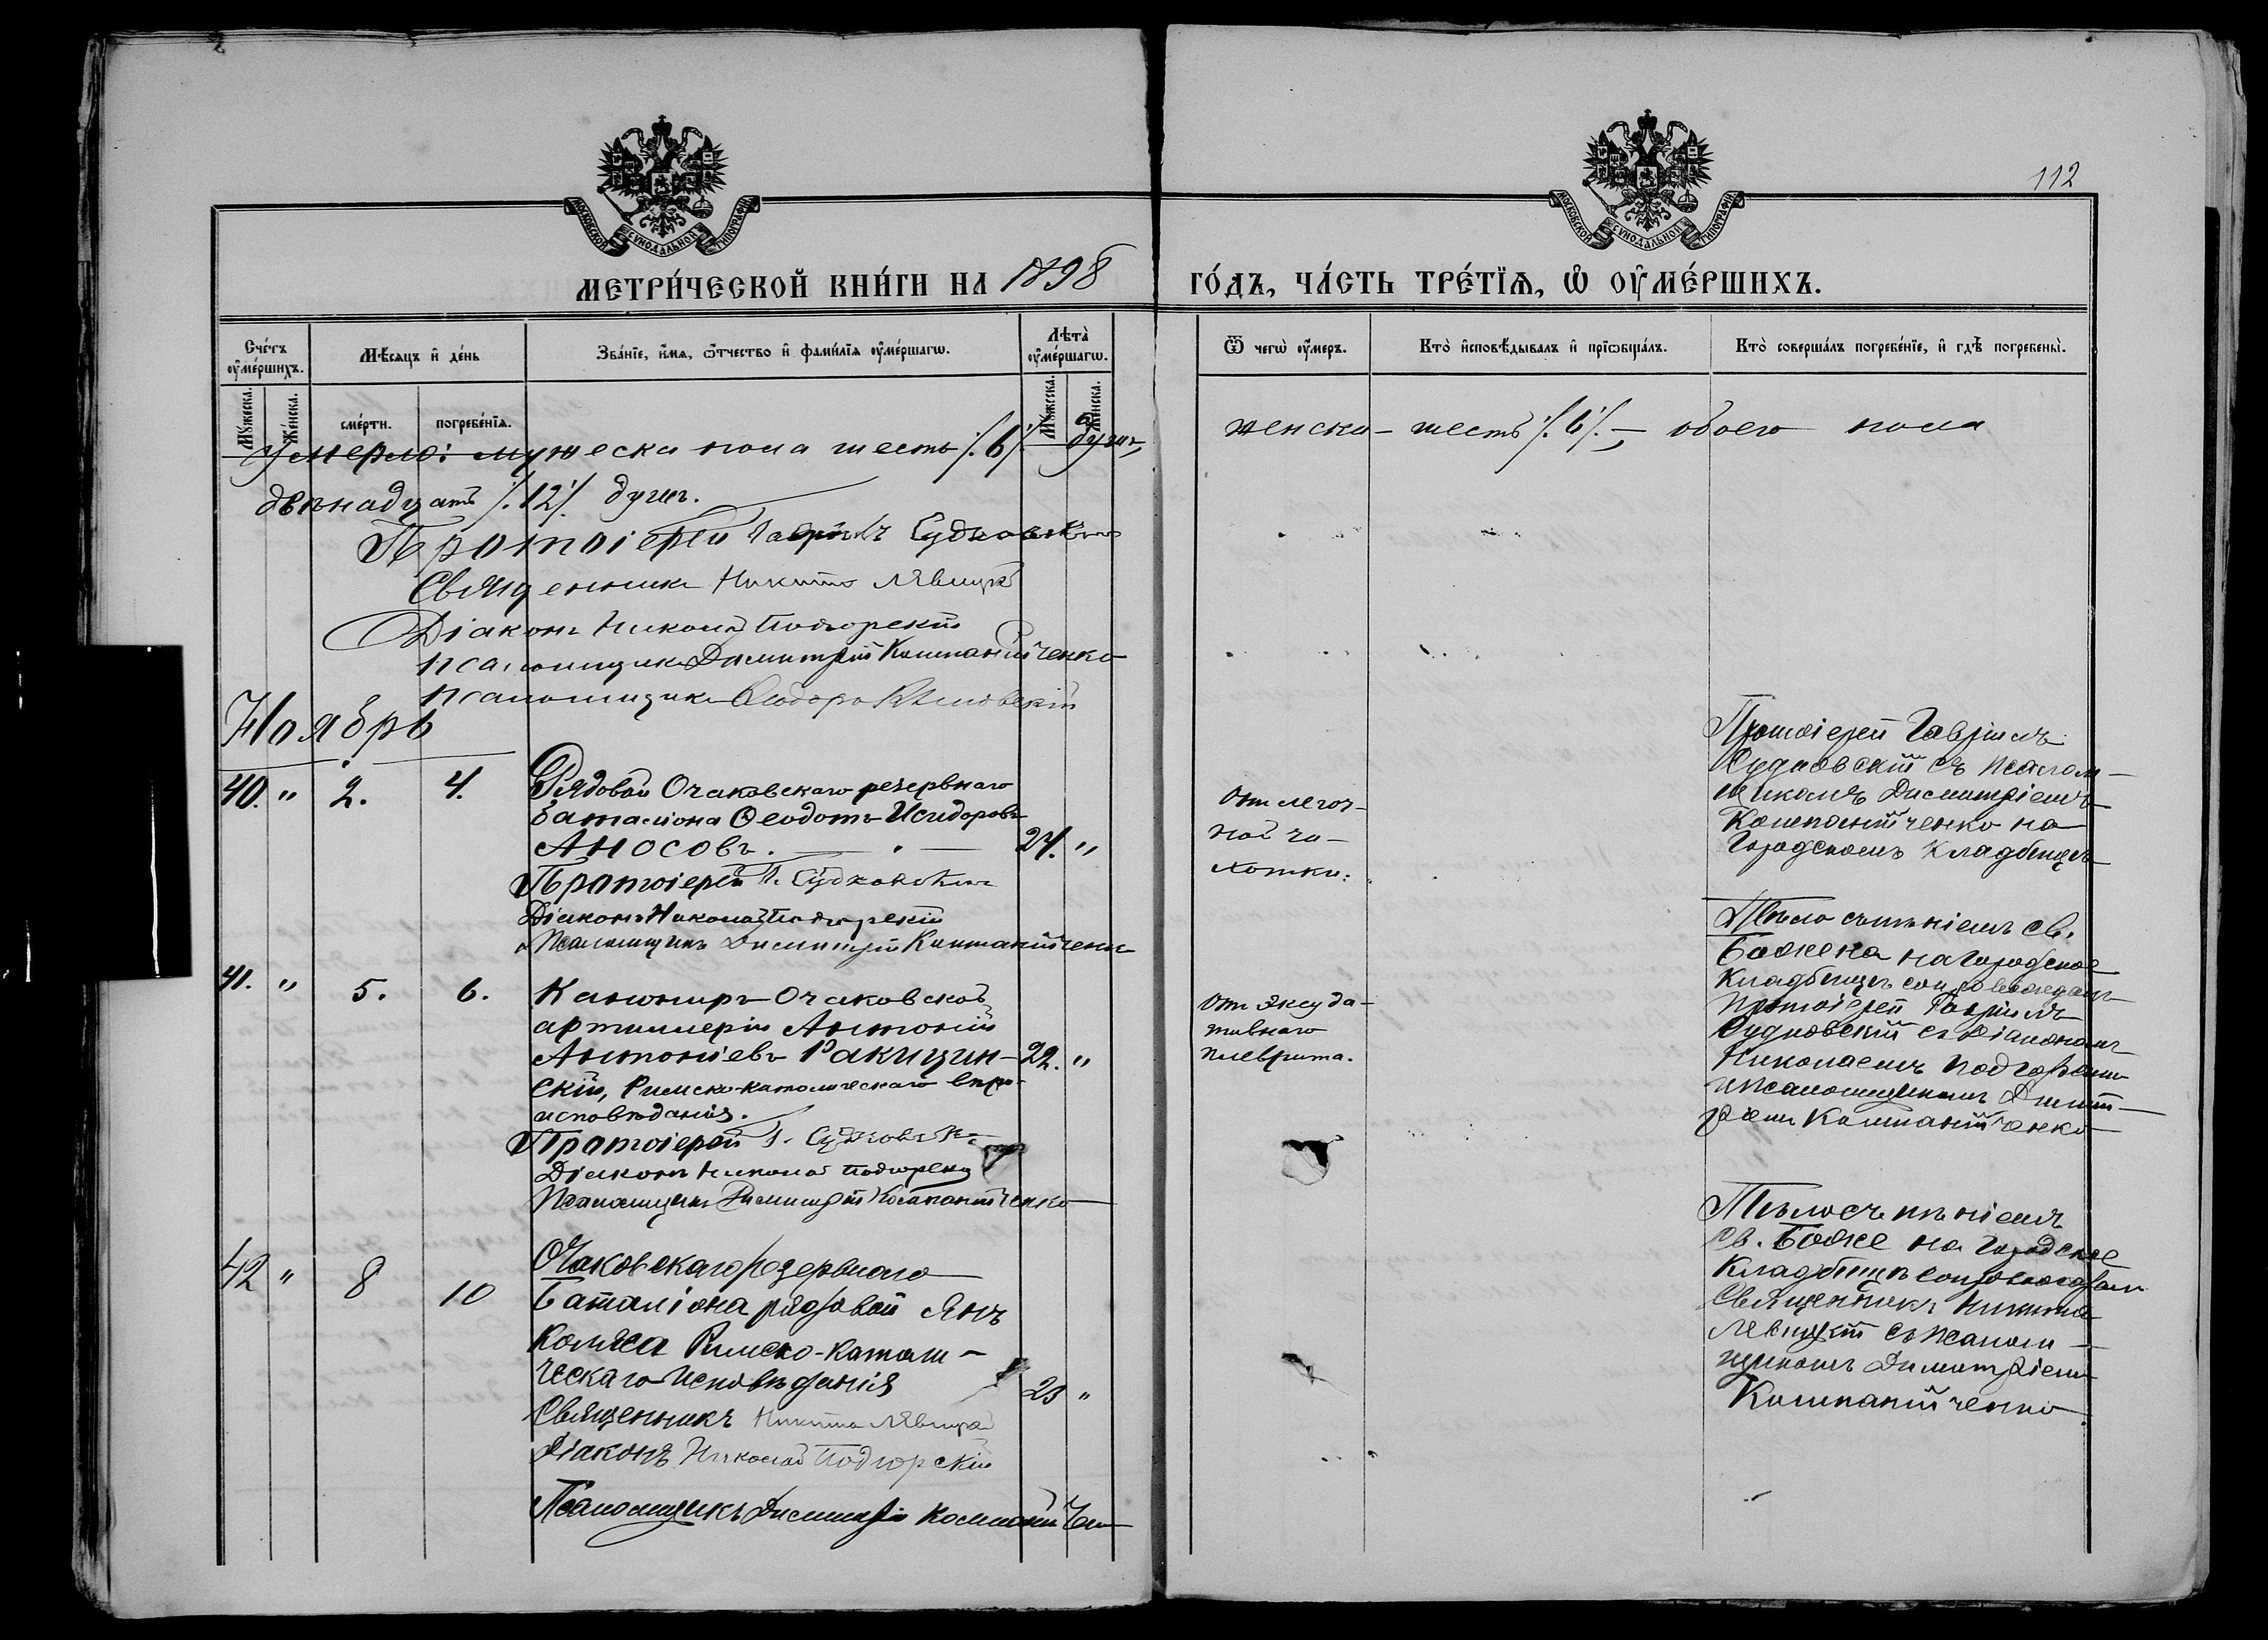 112
МОСКОВСКОЙ СѴНОДАЛЬНОЙ ТИПОГРАФІИ
МОСКОВСКОЙ СѴНОДАЛЬНОЙ ТИПОГРАФІИ
МЕТРИ́ЧЕСКОЙ КНИ́ГИ НА 1898 ГО́ДЪ, ЧА́СТЬ ТРЕ́ТЇѦ, Ѡ҆ ОУ҆МЕ́РШИХЪ.
Сче́тъ оу҆ме́ршихъ.
Мѣ́сяцъ и҆ де́нь
Зва́нїе, и҆́мѧ, ѻ҆́тчество и҆ фами́лїѧ оу҆ме́ршагѡ.
Лѣта̀ оу҆ме́ршагѡ.
Ѿ чегѡ̀ оу҆́меръ.
Кто̀ и҆сповѣ́дывалъ и҆ прїѡбща́лъ.
Кто̀ соверша́лъ погребе́нїе, и҆ гдѣ̀ погребены̀.
Му́жеска.
Же́нска.
сме́рти.
погребе́нїѧ.
Му́жеска.
Же́нска.
Умерло: мужеска пола шесть /.6/. душъ, женска – шесть /.6/. –, обоего пола
двѣнадцать /.12/. душъ.
Протоіерей Гавріилъ Судковскій
Священникъ Никита Лѣвицкій
Діаконъ Николай Подгорскій
Псаломщикъ Димитрій Компанійченко
Псаломщикъ Ѳеодоръ
Ноябрь
40. " 2. 4.
Рядовой Очаковскаго резервнаго
баталіона Ѳеодотъ Исидоровъ
Аносовъ. 24. "
Протоіерей Г. Судковскій
Діаконъ Николай Подгорскій
Псаломщикъ Димитрій Компанійченко
От легоч-
ной ча-
хотки.
Протоіерей Гавріилъ
Судковскій съ псалом-
щикомъ Димитріемъ
Компанійченко на
Городскомъ кладбищѣ
41. " 5. 6.
Канониръ Очаковской
артиллеріи Антоній
Антоніевъ Ракицин- 22. "
скій, Римско-католическаго вѣро-
исповѣданія.
Протоіерей Г. Судковскій
Діаконъ Николай Подгорскій
Псаломщикъ Димитрій Компанійченко
От эксуда-
тивнаго
плеврита.
Тѣло съ пѣніемъ Св.
Боже на городское
кладбище сопровождалъ
Протоіерей Гавріилъ
Судковскій съ діакономъ
Николаемъ Подгорскимъ
и псаломщикомъ Димит-
ріемъ Компанійченко
42 " 8 10
Очаковскаго резервнаго
Баталіона рядовой Янъ
Коляса Римско-католи-
ческаго исповѣданія 23 "
Священникъ Никита Лѣвицкій
Діаконъ Николай Подгорскій
Псаломщикъ Димитрій Компанійченко
Тѣло съ пѣніемъ
Св. Боже на городское
кладбище сопровождалъ
Священникъ Никита
Лѣвицкій съ псалом-
щикомъ Димитріемъ
Компанійченко